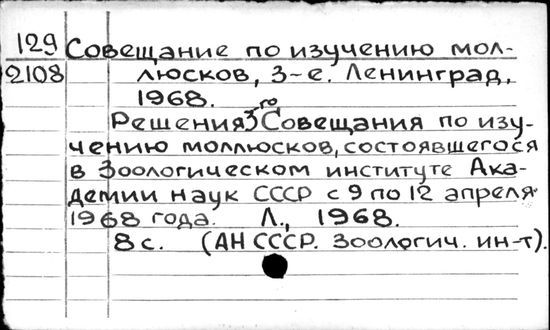 129 Совещание по изучению мол-
2108 люсков, 3-е. Ленинград,
1968.
Решения 3го Совещания по изу-
чению моллюсков, состоявшегося
в Зоологическом институте Ака-
демии наук СССР с 9 по 12 апреля
1968 года. Л., 1968.
8 с. (АН СССР. Зоологич. ин-т).